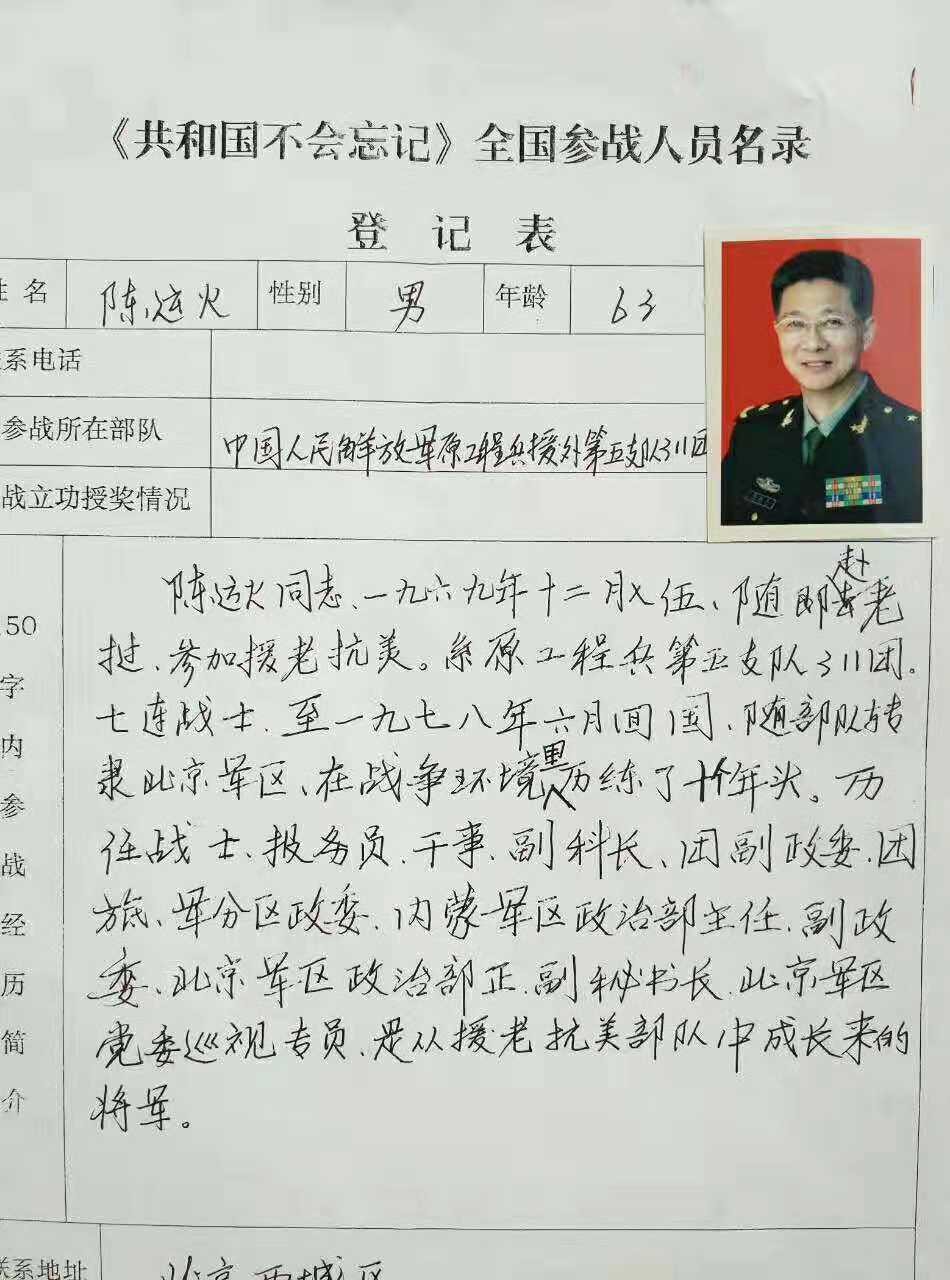 《共和国不会忘记》全国参战人员名录
登 记 表
姓 名 陈运火 性别 男 年龄 63
系电话
参战所在部队 中国人民解放军原工程兵援外第五支队311团
战立功授奖情况
150字内参战经历简介
陈运火同志、一九六九年十二月入伍、随即赴老
挝、参加援老抗美。系原工程兵第五支队311团.
七连战士、至一九七八年六月回国、随部队转
隶北京军区、在战争环境里历练了十个年头。历
任战士、报务员、干事、副科长、团副政委、团
旅、军分区政委、内蒙军区政治部主任、副政
委、北京军区政治部正、副秘书长、北京军区
党委巡视专员、是从援老抗美部队中成长来的
将军。
联系地址 北京西城区